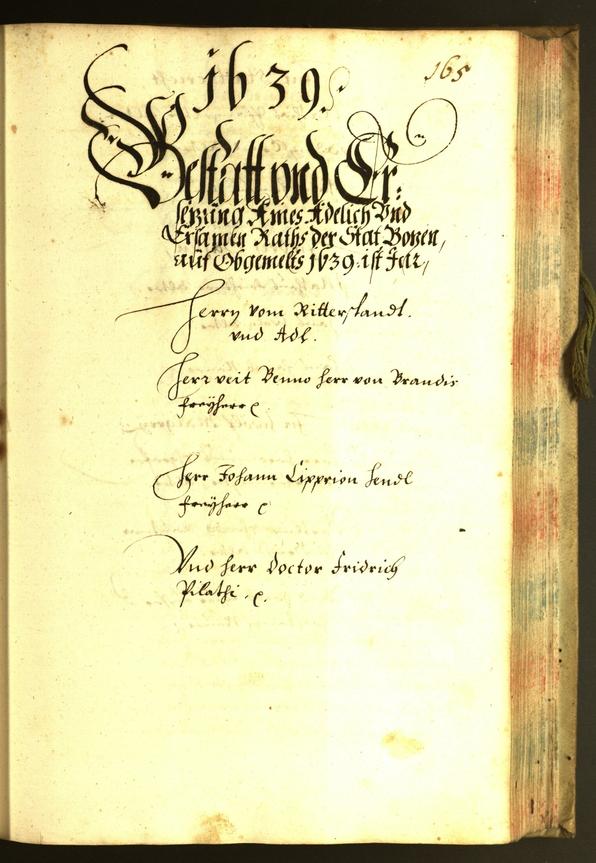 1639.
165
Bestätt vnd Er¬
sezung Aines Adelich Vnd
Ersamen Raths der Stat Bozen,
auf Obgemelts 1639.ist Jar,
Herrn vom Ritterstandt.
vnd Adl.
Herr veit Benno herr von Brandis
freÿherr
Herr Johann Cipprion Hendl
freÿherr
Vnd herr Doctor Fridrich
Pilathi.